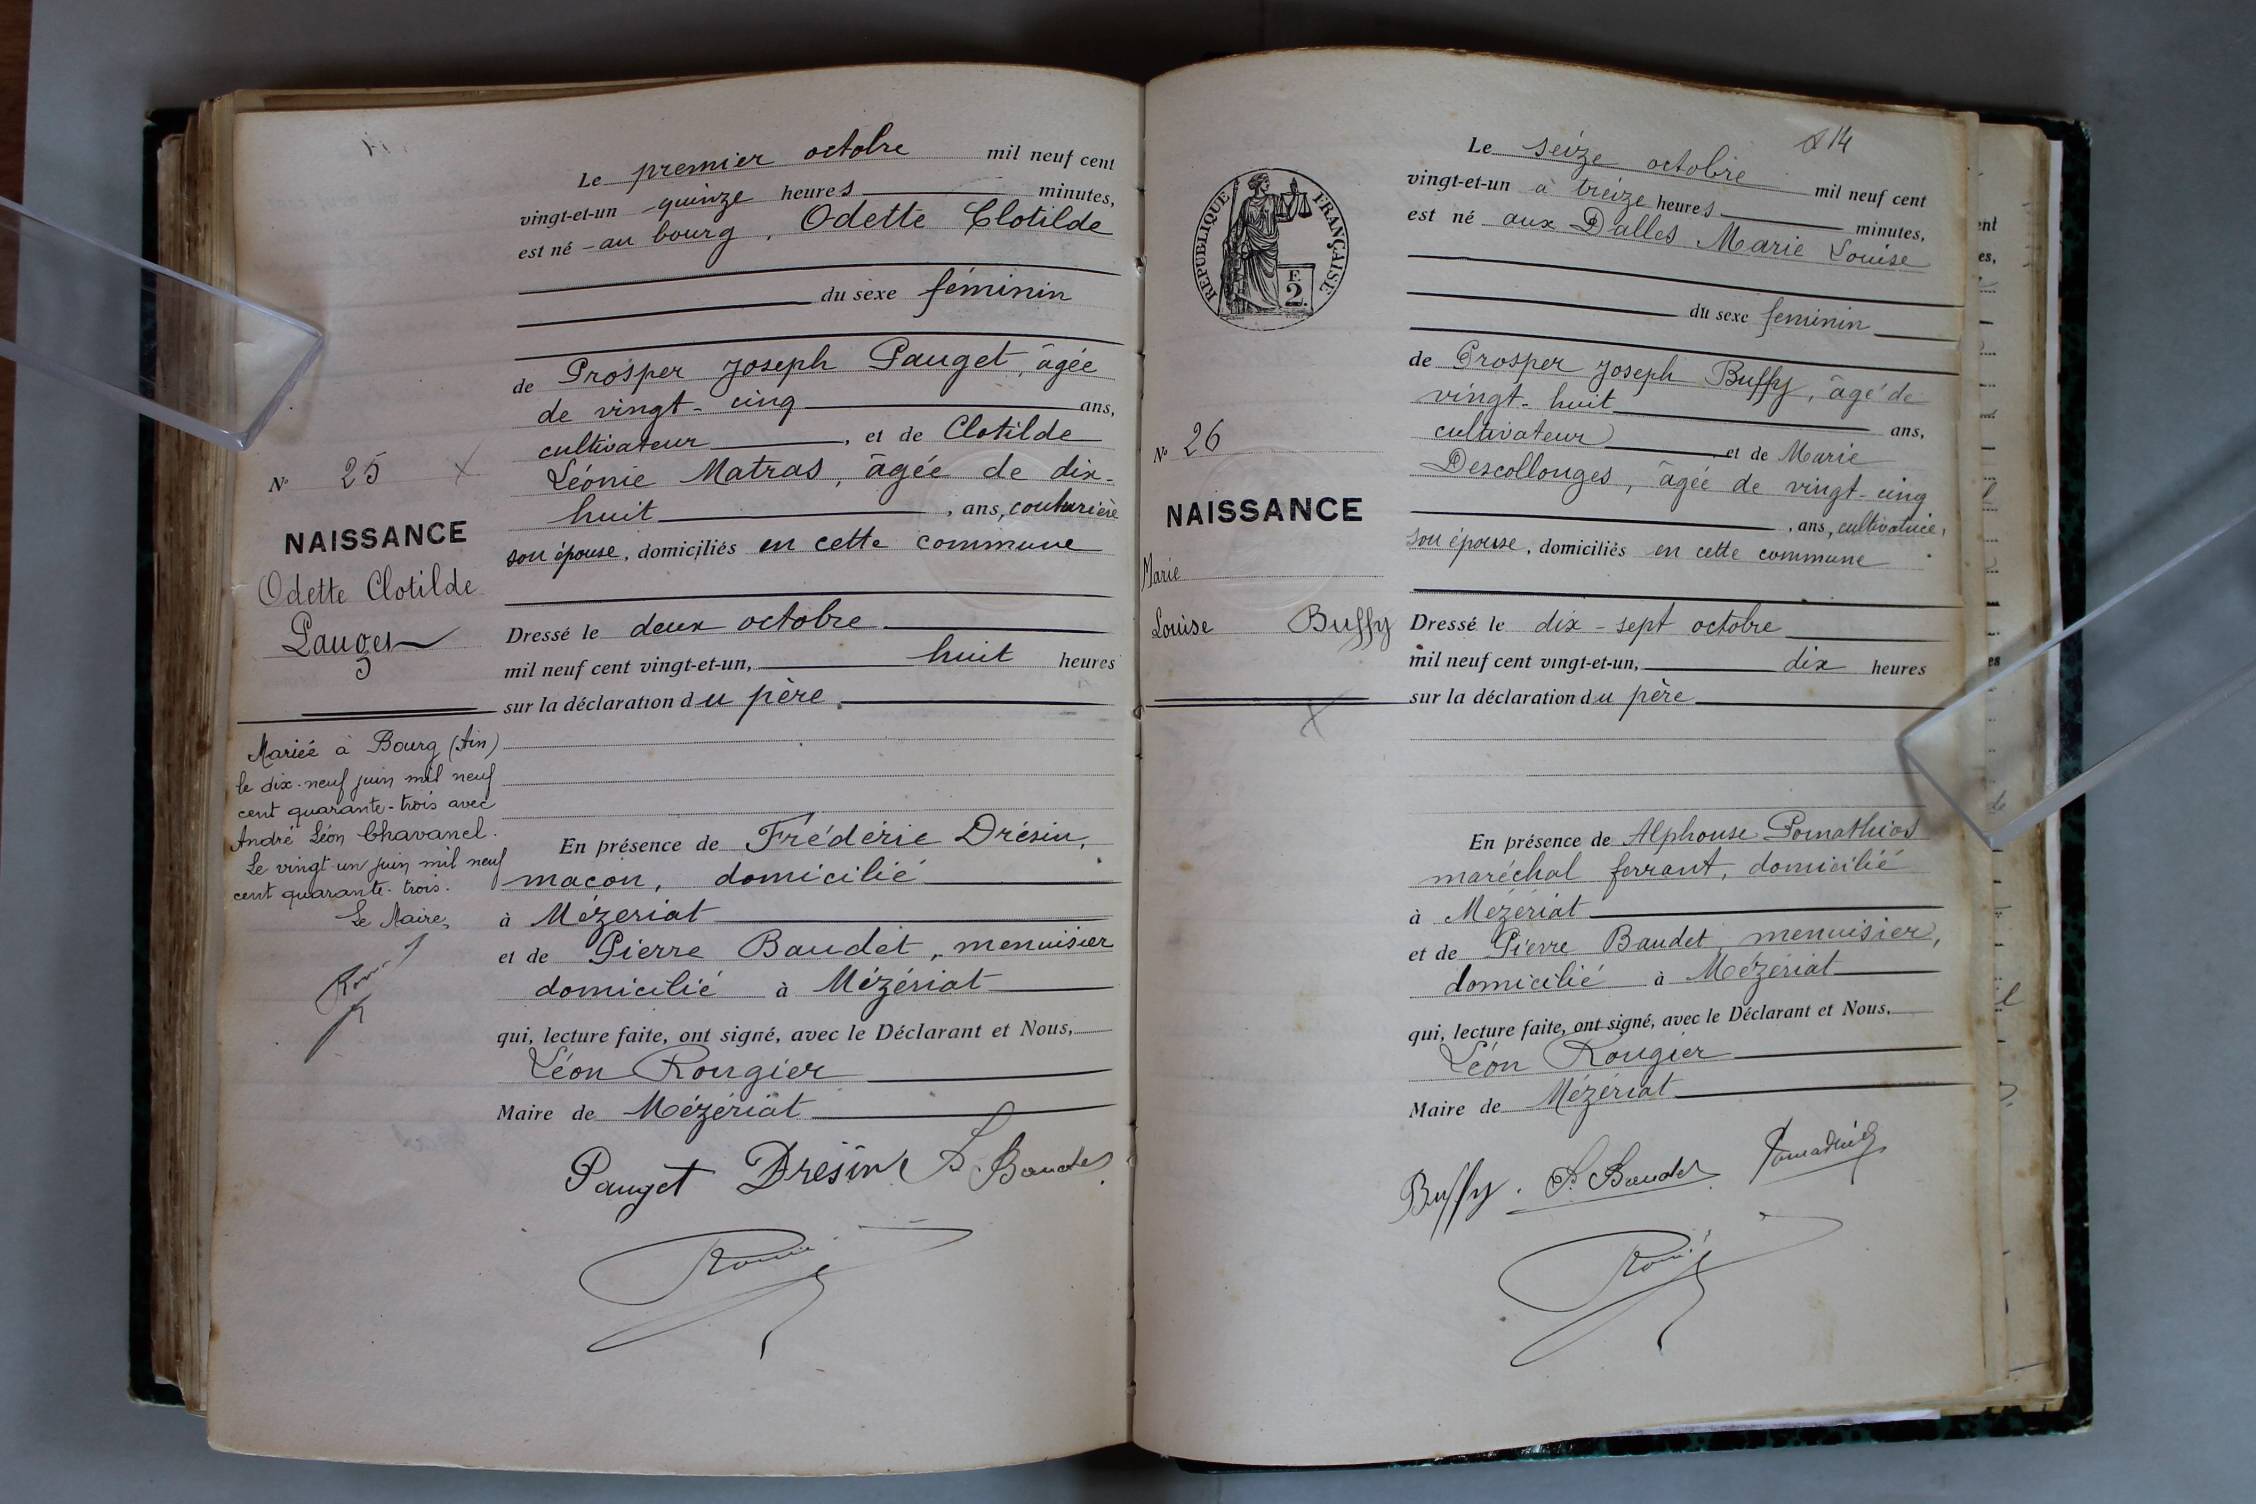 Le premier octobre mil neuf cent
vingt-et-un quinze heures minutes,
est né au bourg, Odette Clotilde
du sexe féminin
de Prosper Joseph Pauget, âgée
de vingt-cinq ans,
cultivateur, et de Clotilde
Léonie Matras, âgée de dix-
huit, ans, couturière
son épouse, domiciliés en cette commune
Nº 25
NAISSANCE
Odette Clotilde
Pauget
Dressé le deux octobre
mil neuf cent vingt-et-un, huit heures
sur la déclaration du père
Mariée à Bourg (Ain)
le dix-neuf juin mil neuf
cent quarante-trois avec
André Léon Chavanel.
Le vingt-un juin mil neuf
cent quarante-trois.
Le Maire,
En présence de Frédéric Drésin,
maçon, domicilié
à Mézériat
et de Pierre Baudet, menuisier
domicilié à Mézériat
qui, lecture faite, ont signé, avec le Déclarant et Nous,
Léon Rougier
Maire de Mézériat
Pauget Dresin P. Baudet
214
Le seize octobre mil neuf cent
vingt-et-un à treize heures minutes,
est né aux Dalles Marie Louise
du sexe féminin
RÉPUBLIQUE FRANÇAISE
F.
2.
de Prosper Joseph Buffy, âgé de
vingt-huit ans,
cultivateur, et de Marie
Descollonges, âgée de vingt-cinq
, ans, cultivatrice,
son épouse, domiciliés en cette commune
Nº 26
NAISSANCE
Marie
Louise Buffy
Dressé le dix-sept octobre
mil neuf cent vingt-et-un, dix heures
sur la déclaration du père
En présence de Alphonse Pomathios
maréchal ferrant, domicilié
à Mézériat
et de Pierre Baudet, menuisier,
domicilié à Mézériat
qui, lecture faite, ont signé, avec le Déclarant et Nous,
Léon Rougier
Maire de Mézériat
Buffy. P. Baudet